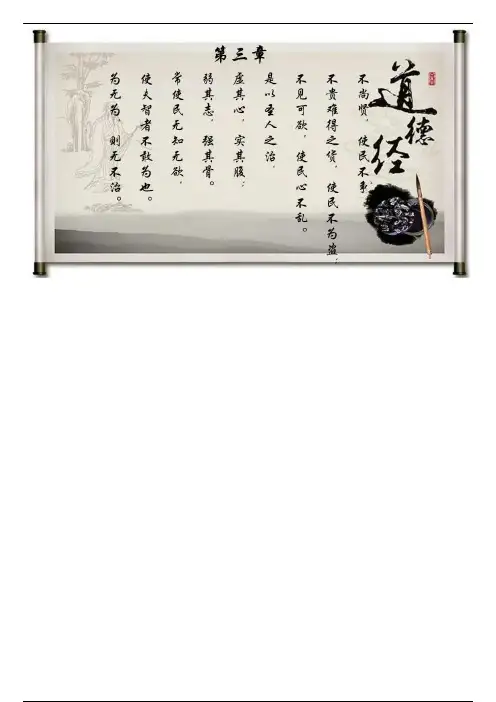 第三章
道德经
不尚贤，使民不争，
不贵难得之货，使民不为盗；
不见可欲，使民心不乱。
是以圣人之治，
虚其心，实其腹；
弱其志，强其骨。
常使民无知无欲，
使夫智者不敢为也。
为无为，则无不治。